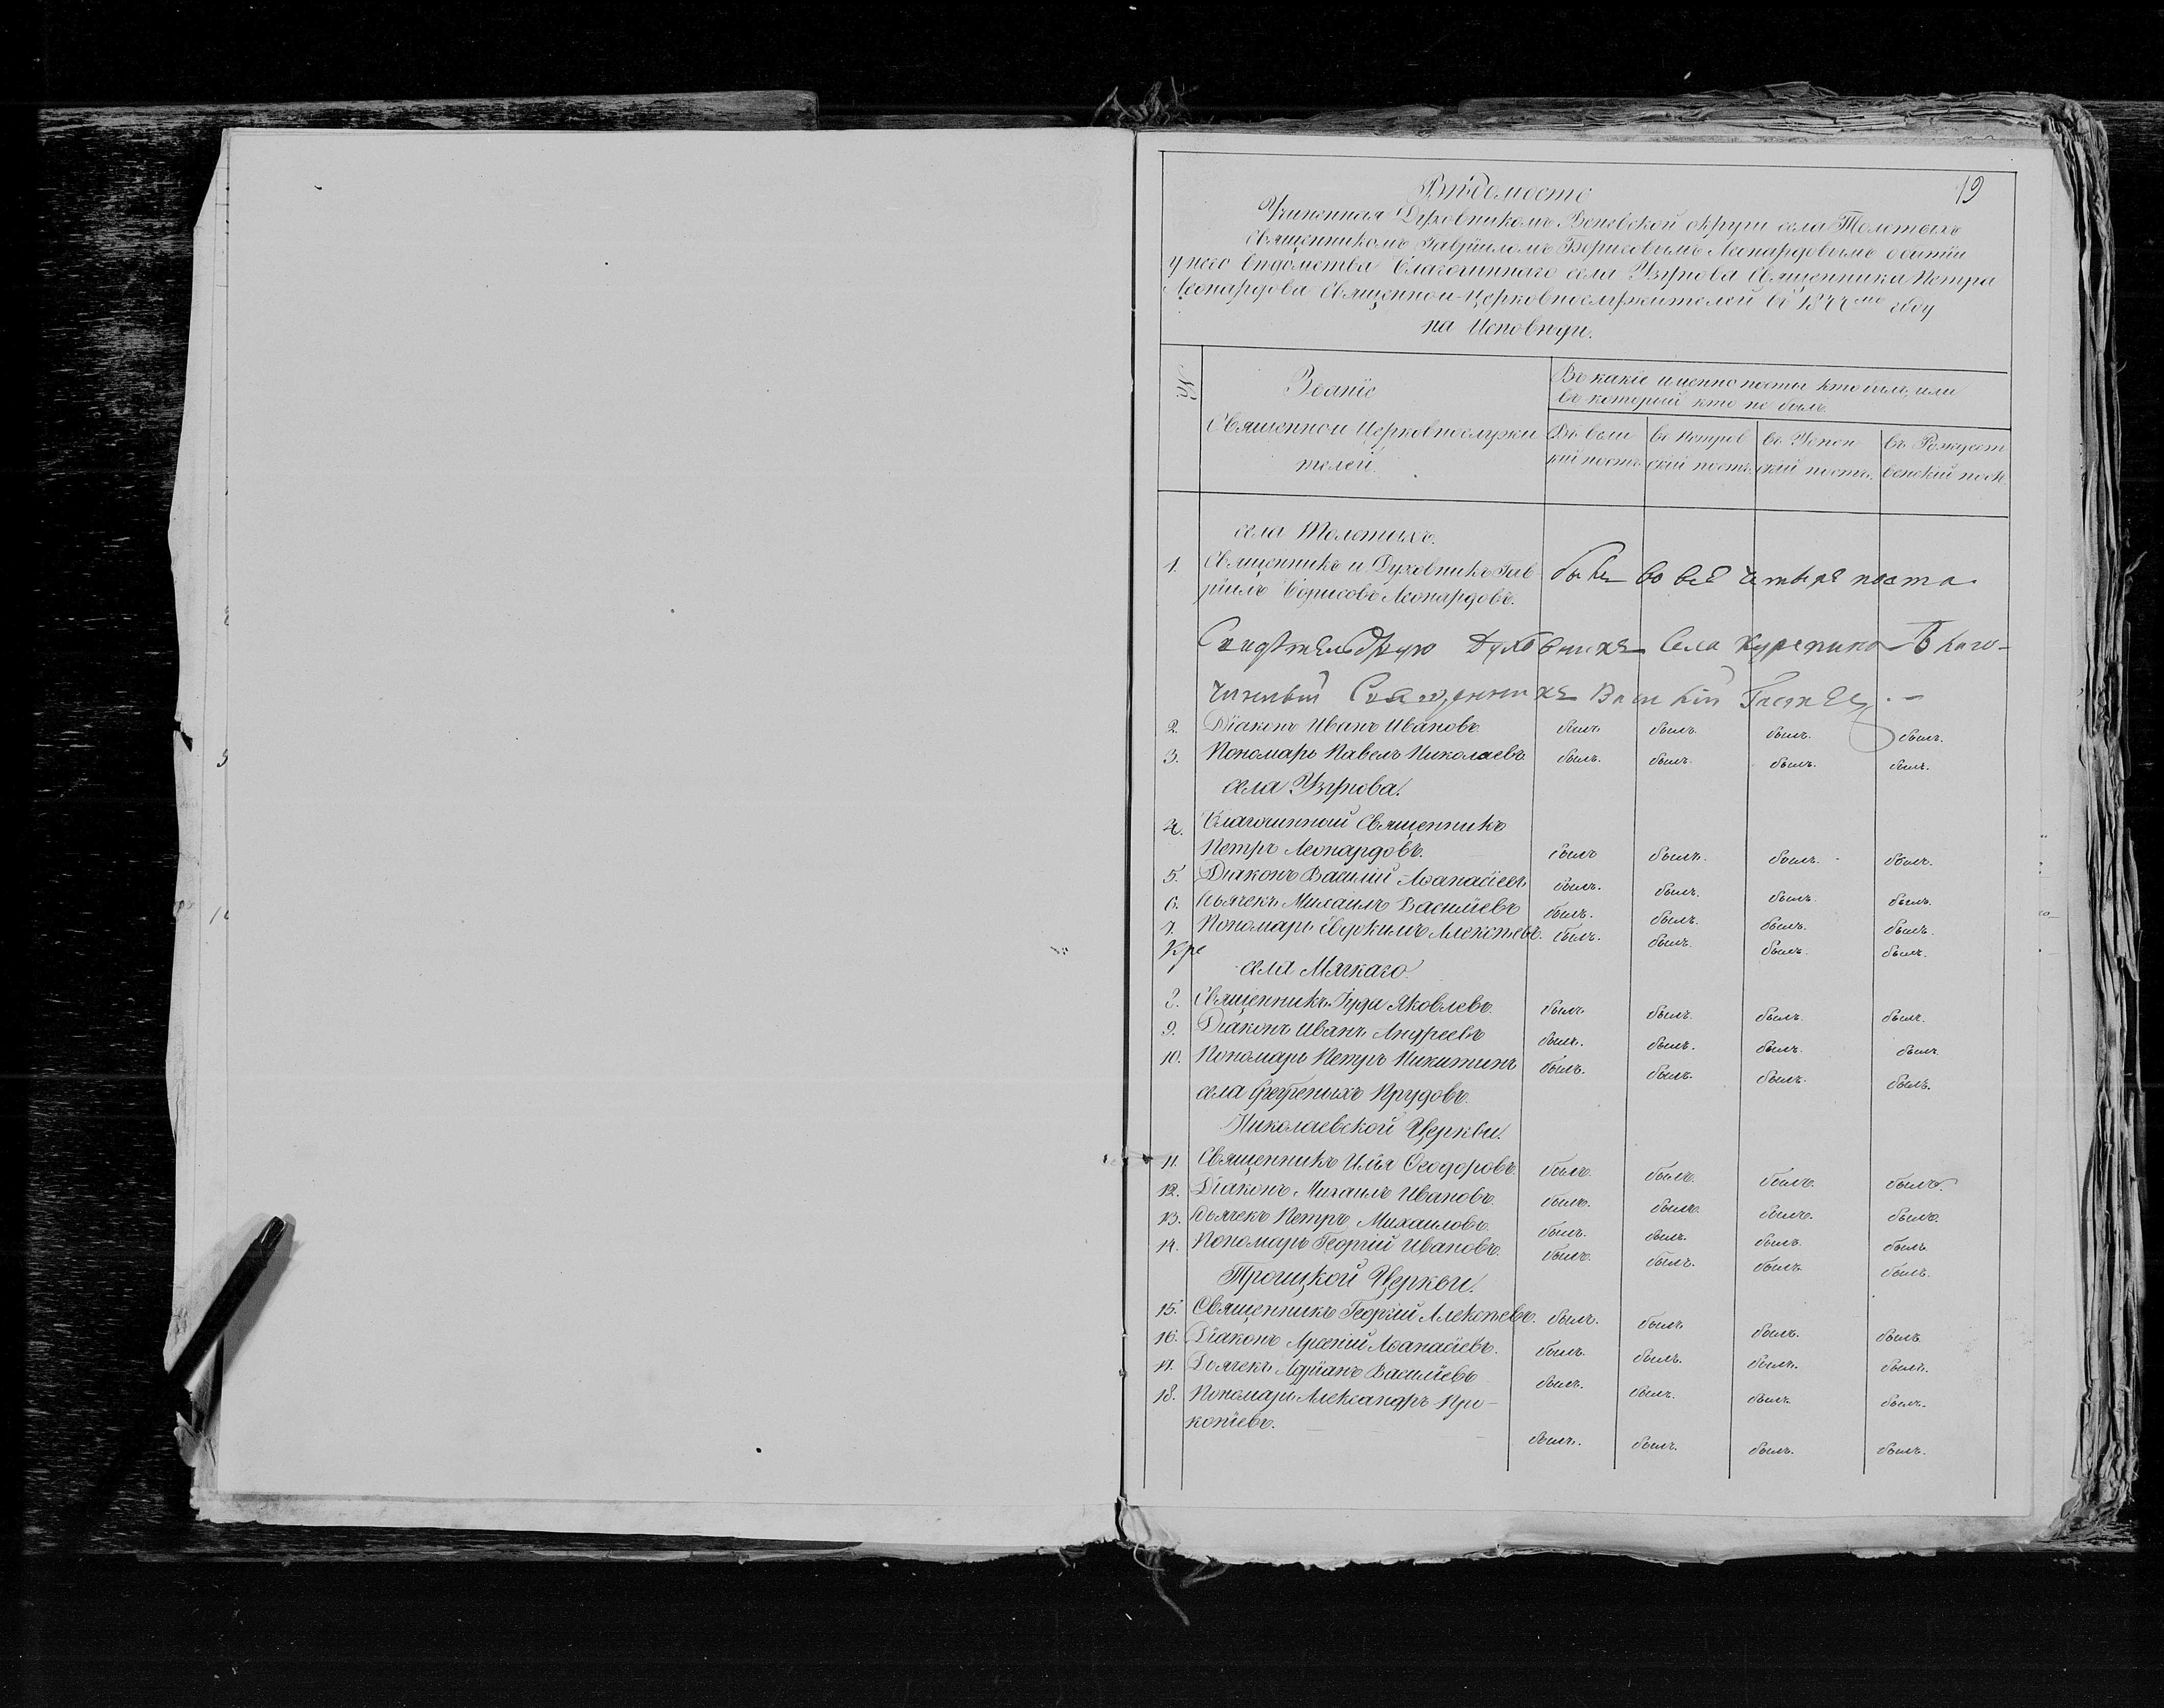 19
Вѣдомость
Учиненная Духовникомъ Веневской округи села Толстыхъ
Священникомъ Гавріиломъ Борисовымъ Леонардовымъ о бытіи
у него вѣдомства Благочиннаго села Узунова Священника Петра
Леонардова Священно-церковнослужителей въ 184 году
на Исповѣди.
№
Званіе
Священно и Церковнослужи
телей.
Въ какіе именно посты кто былъ, или
въ который кто не былъ.
Въ вели
кій постъ.
въ Петров
скій постъ.
въ Успен
скій постъ.
въ Рождест
венскій постъ.
села Толстыхъ.
1. Священникъ и Духовникъ Гав
ріилъ Борисовъ Леонардовъ. былъ во всѣ четыре поста
Свидѣтельствую Духовникъ села Благо-
чинный Священникъ Василій
2. Діаконъ Иванъ Ивановъ былъ былъ. былъ. былъ.
3. Пономарь Павелъ Николаевъ былъ. былъ. былъ. былъ.
села Узунова.
4. Благочинный Священникъ
Петръ Леонардовъ. былъ былъ. былъ. былъ.
5. Діаконъ Василій Аѳанасіевъ былъ. былъ. былъ. былъ.
6. Дьячекъ Михаилъ Василіевъ былъ. былъ. былъ. былъ.
7. Пономарь Алексѣевъ. былъ. былъ. былъ. былъ.
Кре
села Мягкаго.
8. Священникъ Іуда Яковлевъ. былъ. былъ. былъ. былъ.
9. Діаконъ Иванъ Андреевъ былъ. былъ. былъ. былъ
10. Пономарь Петръ Никитинъ былъ. былъ. былъ. былъ.
села Прудовъ.
Николаевской Церкви.
11. Священникъ Илія Ѳеодоровъ. былъ. былъ. былъ. былъ.
12. Діаконъ Михаилъ Ивановъ. былъ. былъ. былъ. былъ.
13. Дьячекъ Петръ Михаиловъ. былъ. былъ. былъ. былъ.
14. Пономарь Георгій Ивановъ. былъ. былъ. былъ. былъ.
Троицкой Церкви.
15. Священникъ Георгій Алексѣевъ. былъ. былъ. былъ. былъ.
16. Діаконъ Арсеній Аѳанасіевъ. былъ. былъ. былъ. былъ.
17. Дьячекъ Адріанъ Василіевъ былъ. былъ. былъ. былъ.
18. Пономарь Александръ Про-
копіевъ. былъ. былъ. былъ. былъ.